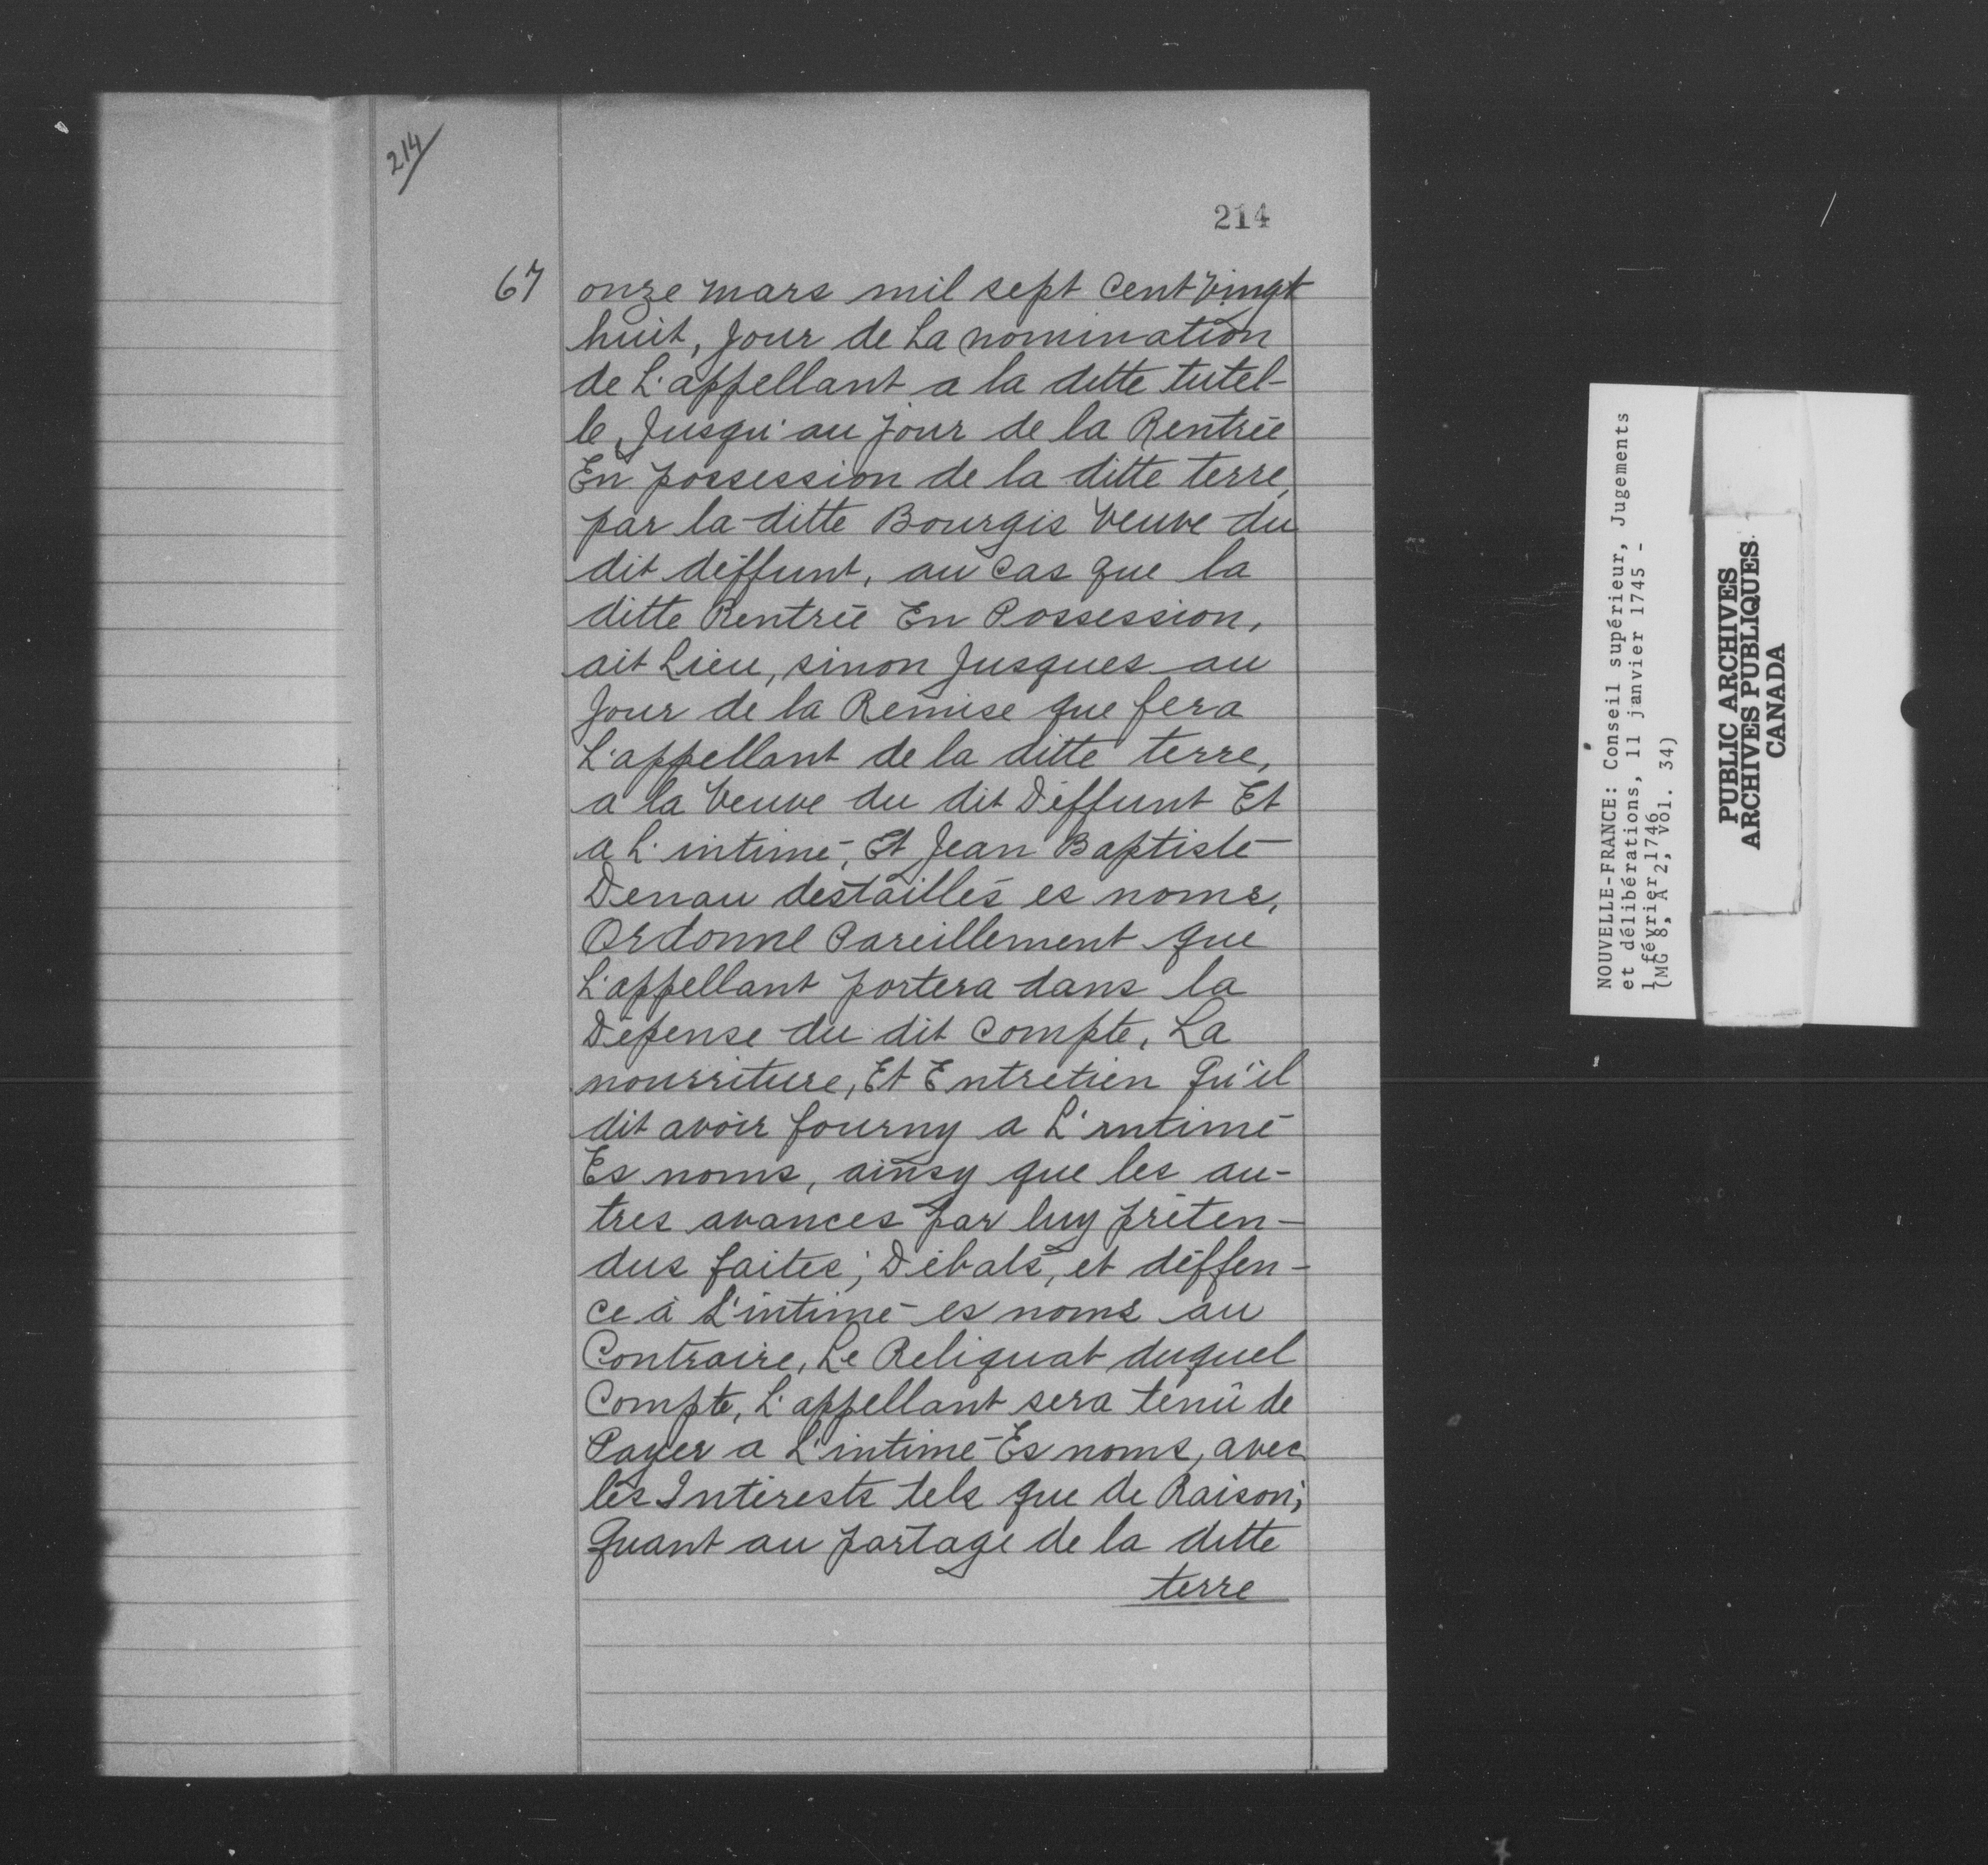 214
214
67
onze mars mil sept Cent Vingt
huit, Jour de La nomination
de L'appellant a la ditte tutel-
le, Jusqu'au jour de la Rentrée
En possession de la ditte terre,
par la ditte Bourgis Veuve du
dit déffunt, au Cas que la
ditte Rentrée En Possession,
ait Lieu, sinon Jusques au
Jour de la Remise que fera
L'appellant de la ditte terre,
a la Veuve du dit Déffunt Et
a L'intimé, Et Jean Baptiste
Denau destaillés es noms,
Ordonne Pareillement que
L'appellant portera dans la
Dépense du dit Compte, La
nourriture, Et Entretien Qu'il
dit avoir fourny a L'intimé
Es noms, ainsy que les au-
tres avances par luy préten-
dus faites; Débats, et déffen-
ce à L'intimé es noms au
Contraire, Le Reliquat duquel
Compte, L'appellant sera tenû de
Payer a L'intimé Es noms, avec
les Intérests tels que de Raison;
Quant au partage de la ditte
terre
NOUVELLE-FRANCE: Conseil supérieur, Jugements
et délibérations, 11 janvier 1745 -
1 février 1746
(MG 8, A 2, vol. 34)
PUBLIC ARCHIVES
ARCHIVES PUBLIQUES
CANADA